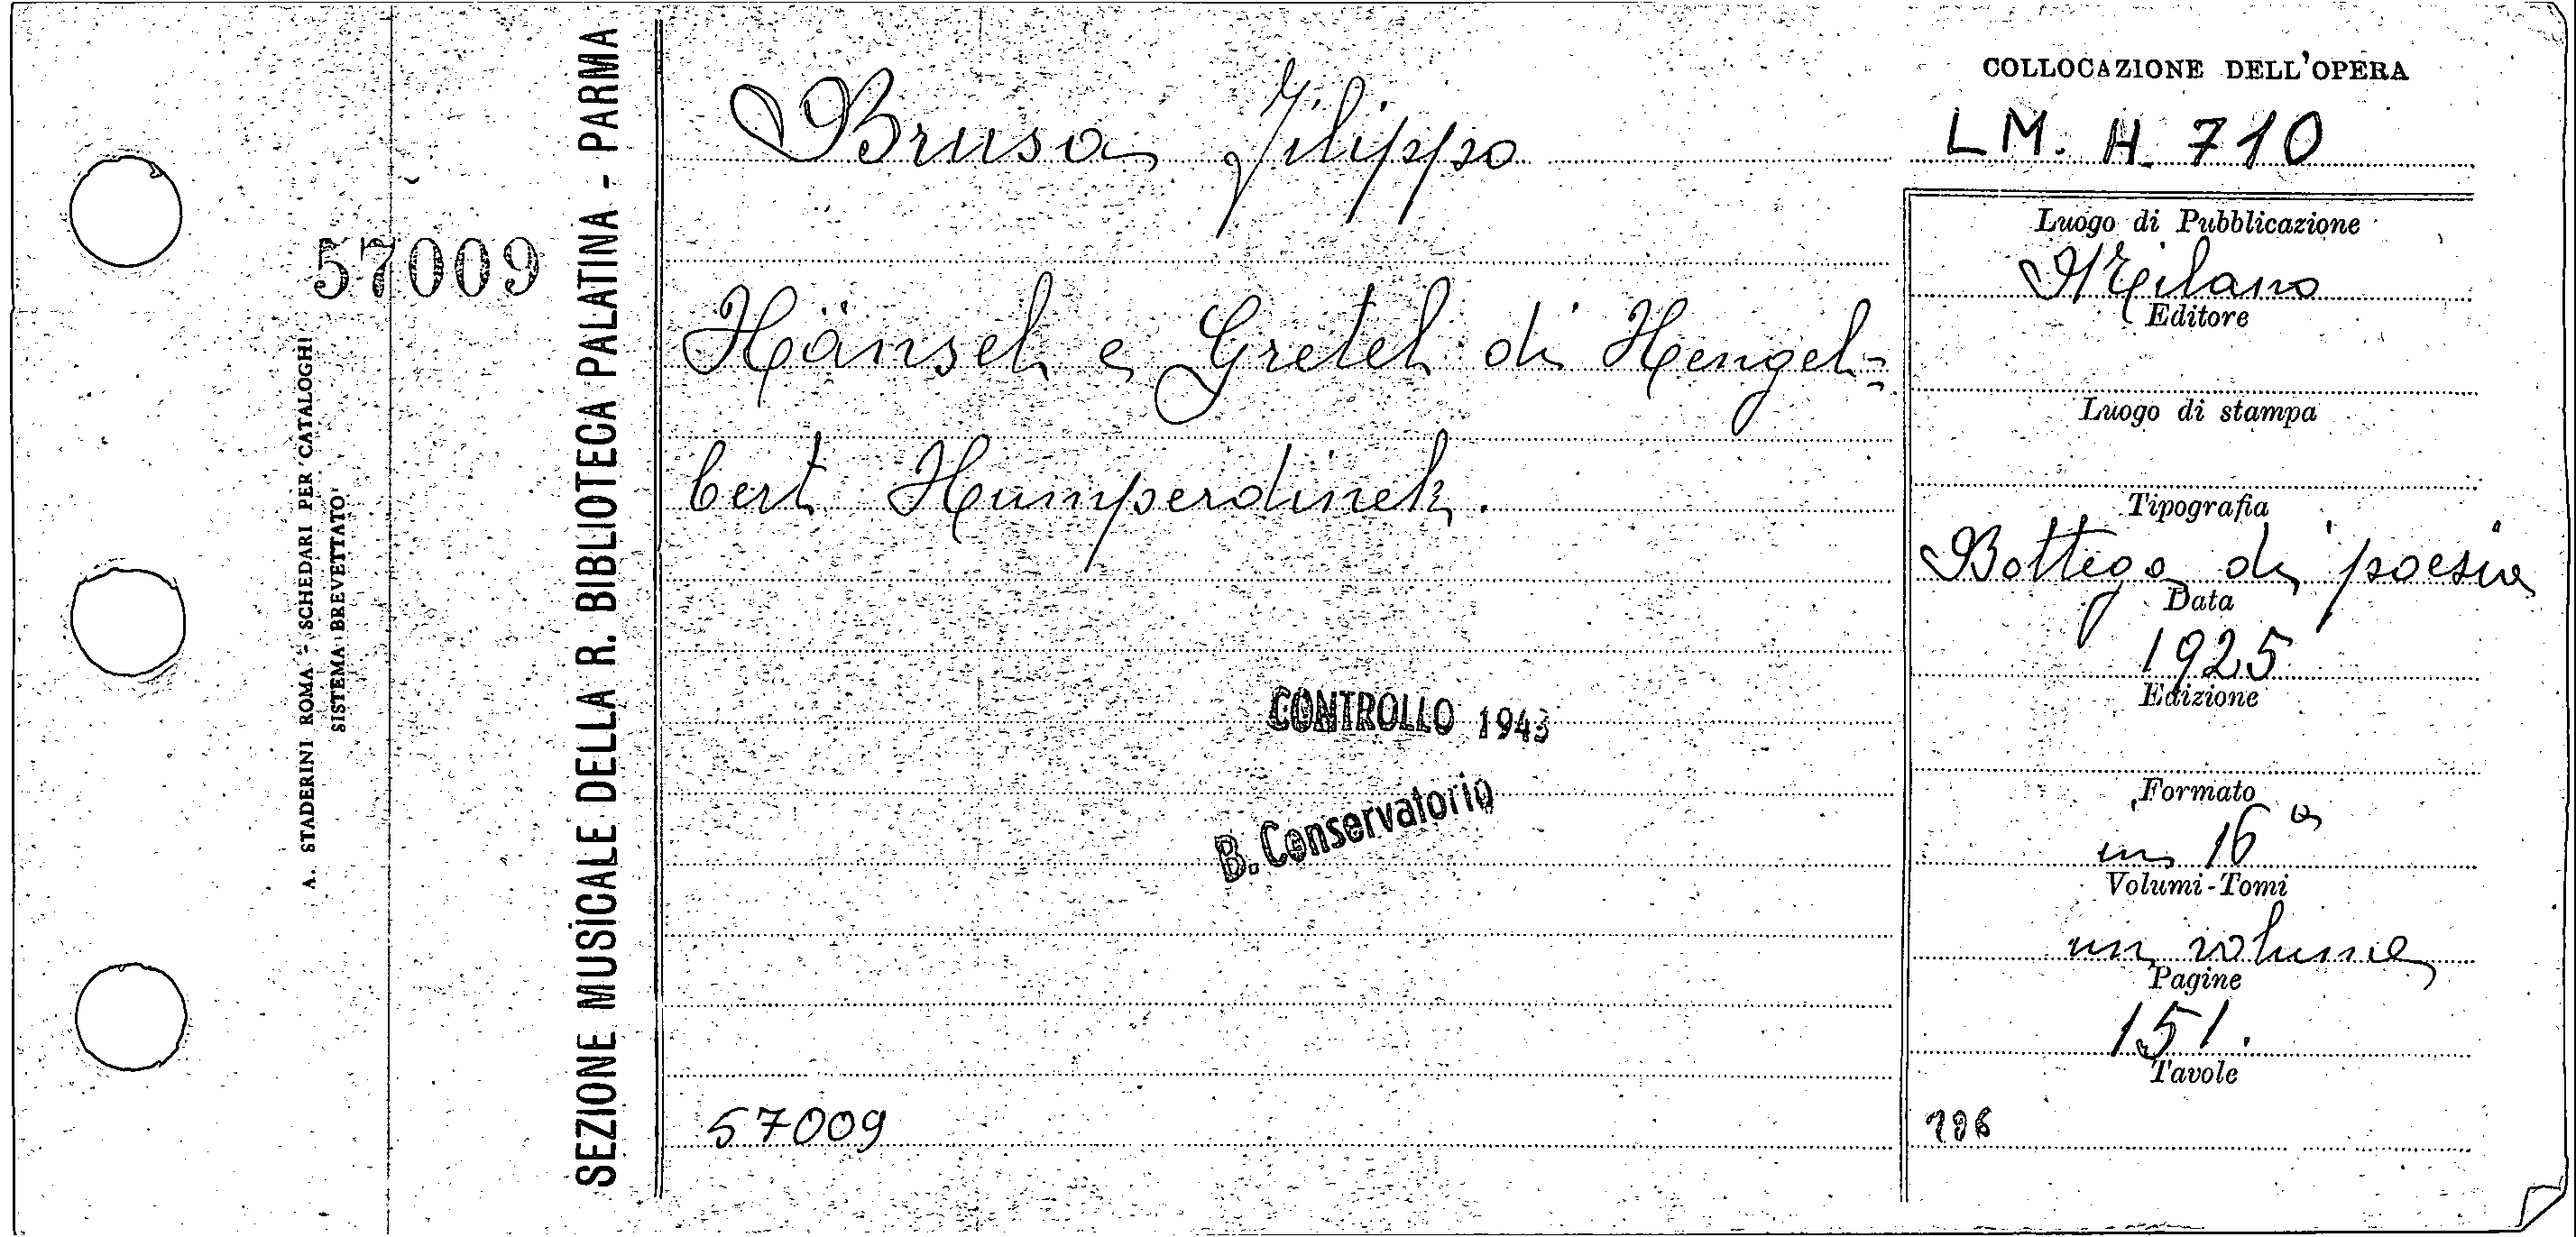 COLLOCAZIONE DELL'OPERA
LM. H. 710
Brusa Filippo
Hänsel e Gretel di Hengel=
bert Humperdinck.
CONTROLLO 1943
B. Conservatorio
57009
Luogo di Pubblicazione
Milano
Editore
Luogo di stampa
Tipografia
Bottega di poesia
Data
1925
Edizione
Formato
in 16º
Volumi-Tomi
un volume
Pagine
151.
Tavole
SEZIONE MUSICALE DELLA R. BIBLIOTECA PALATINA - PARMA
57009
A. STADERINI ROMA - SCHEDARI PER CATALOGHI
SISTEMA BREVETTATO